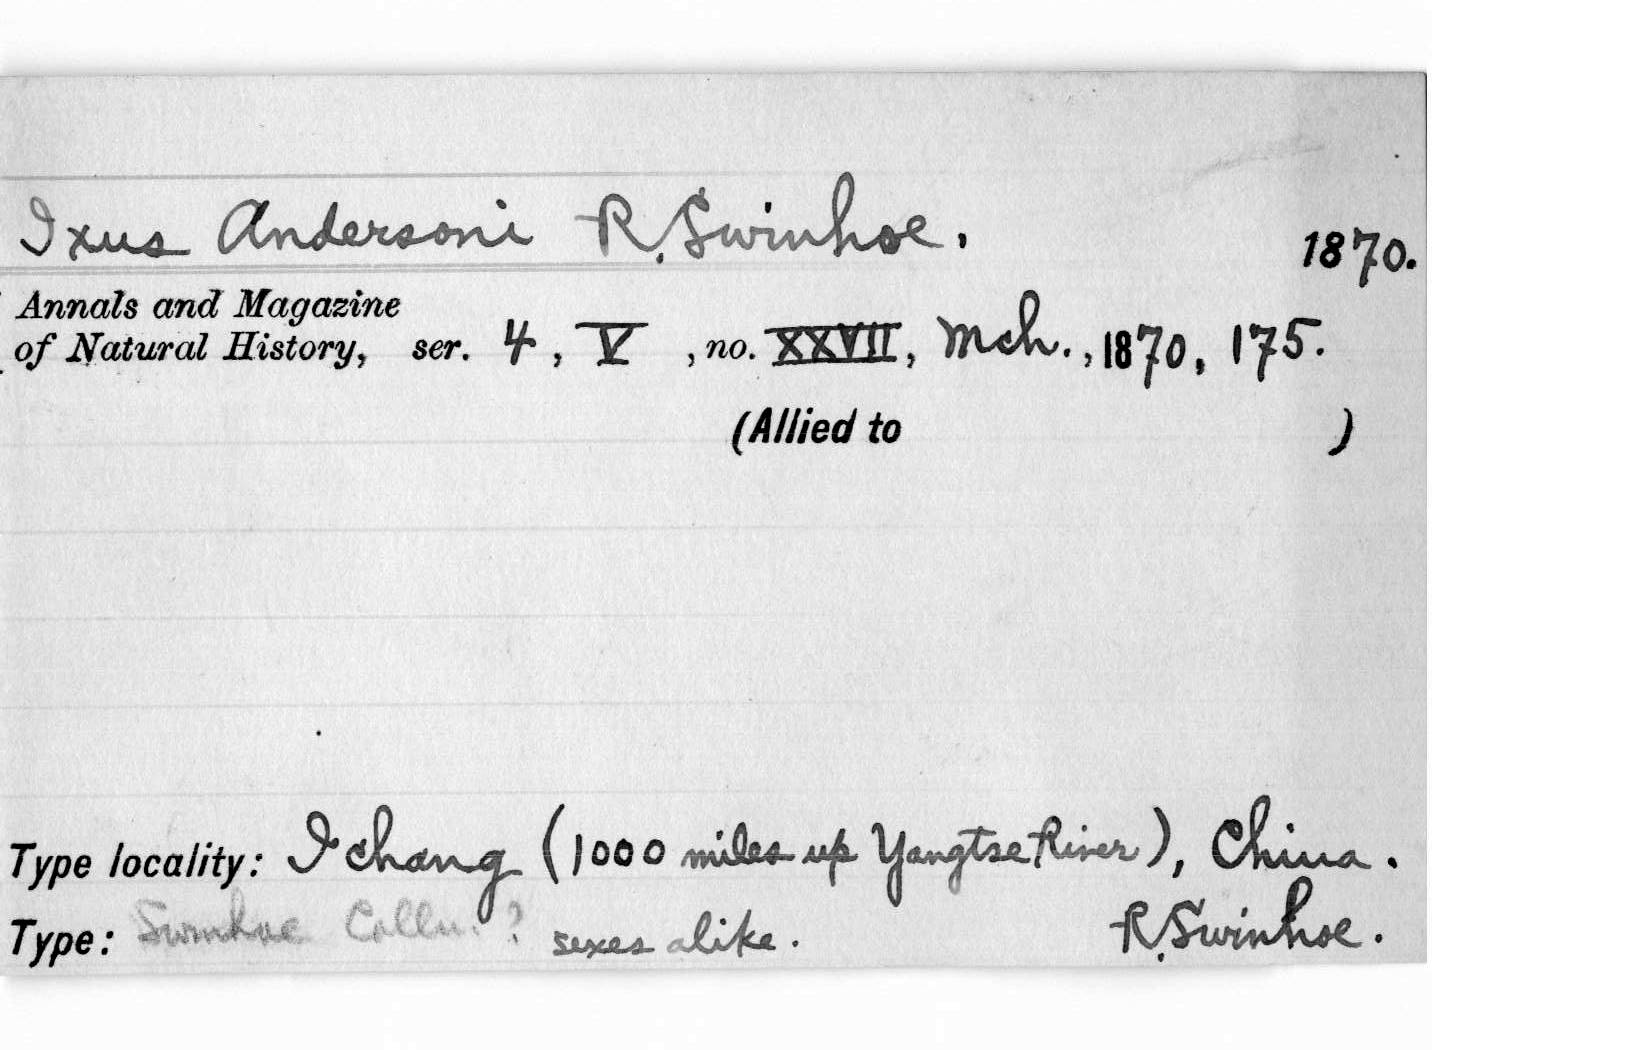 Ixus Andersoni R. Swinhoe. 1870.
Annals and Magazine
of Natural History, ser. 4, V, no. XXVII, Mch., 1870, 175.
(Allied to )
Type locality: Ichang (1000 miles up Yangtse River), China.
Type: Swinhoe Colln. ? sexes alike. R. Swinhoe.